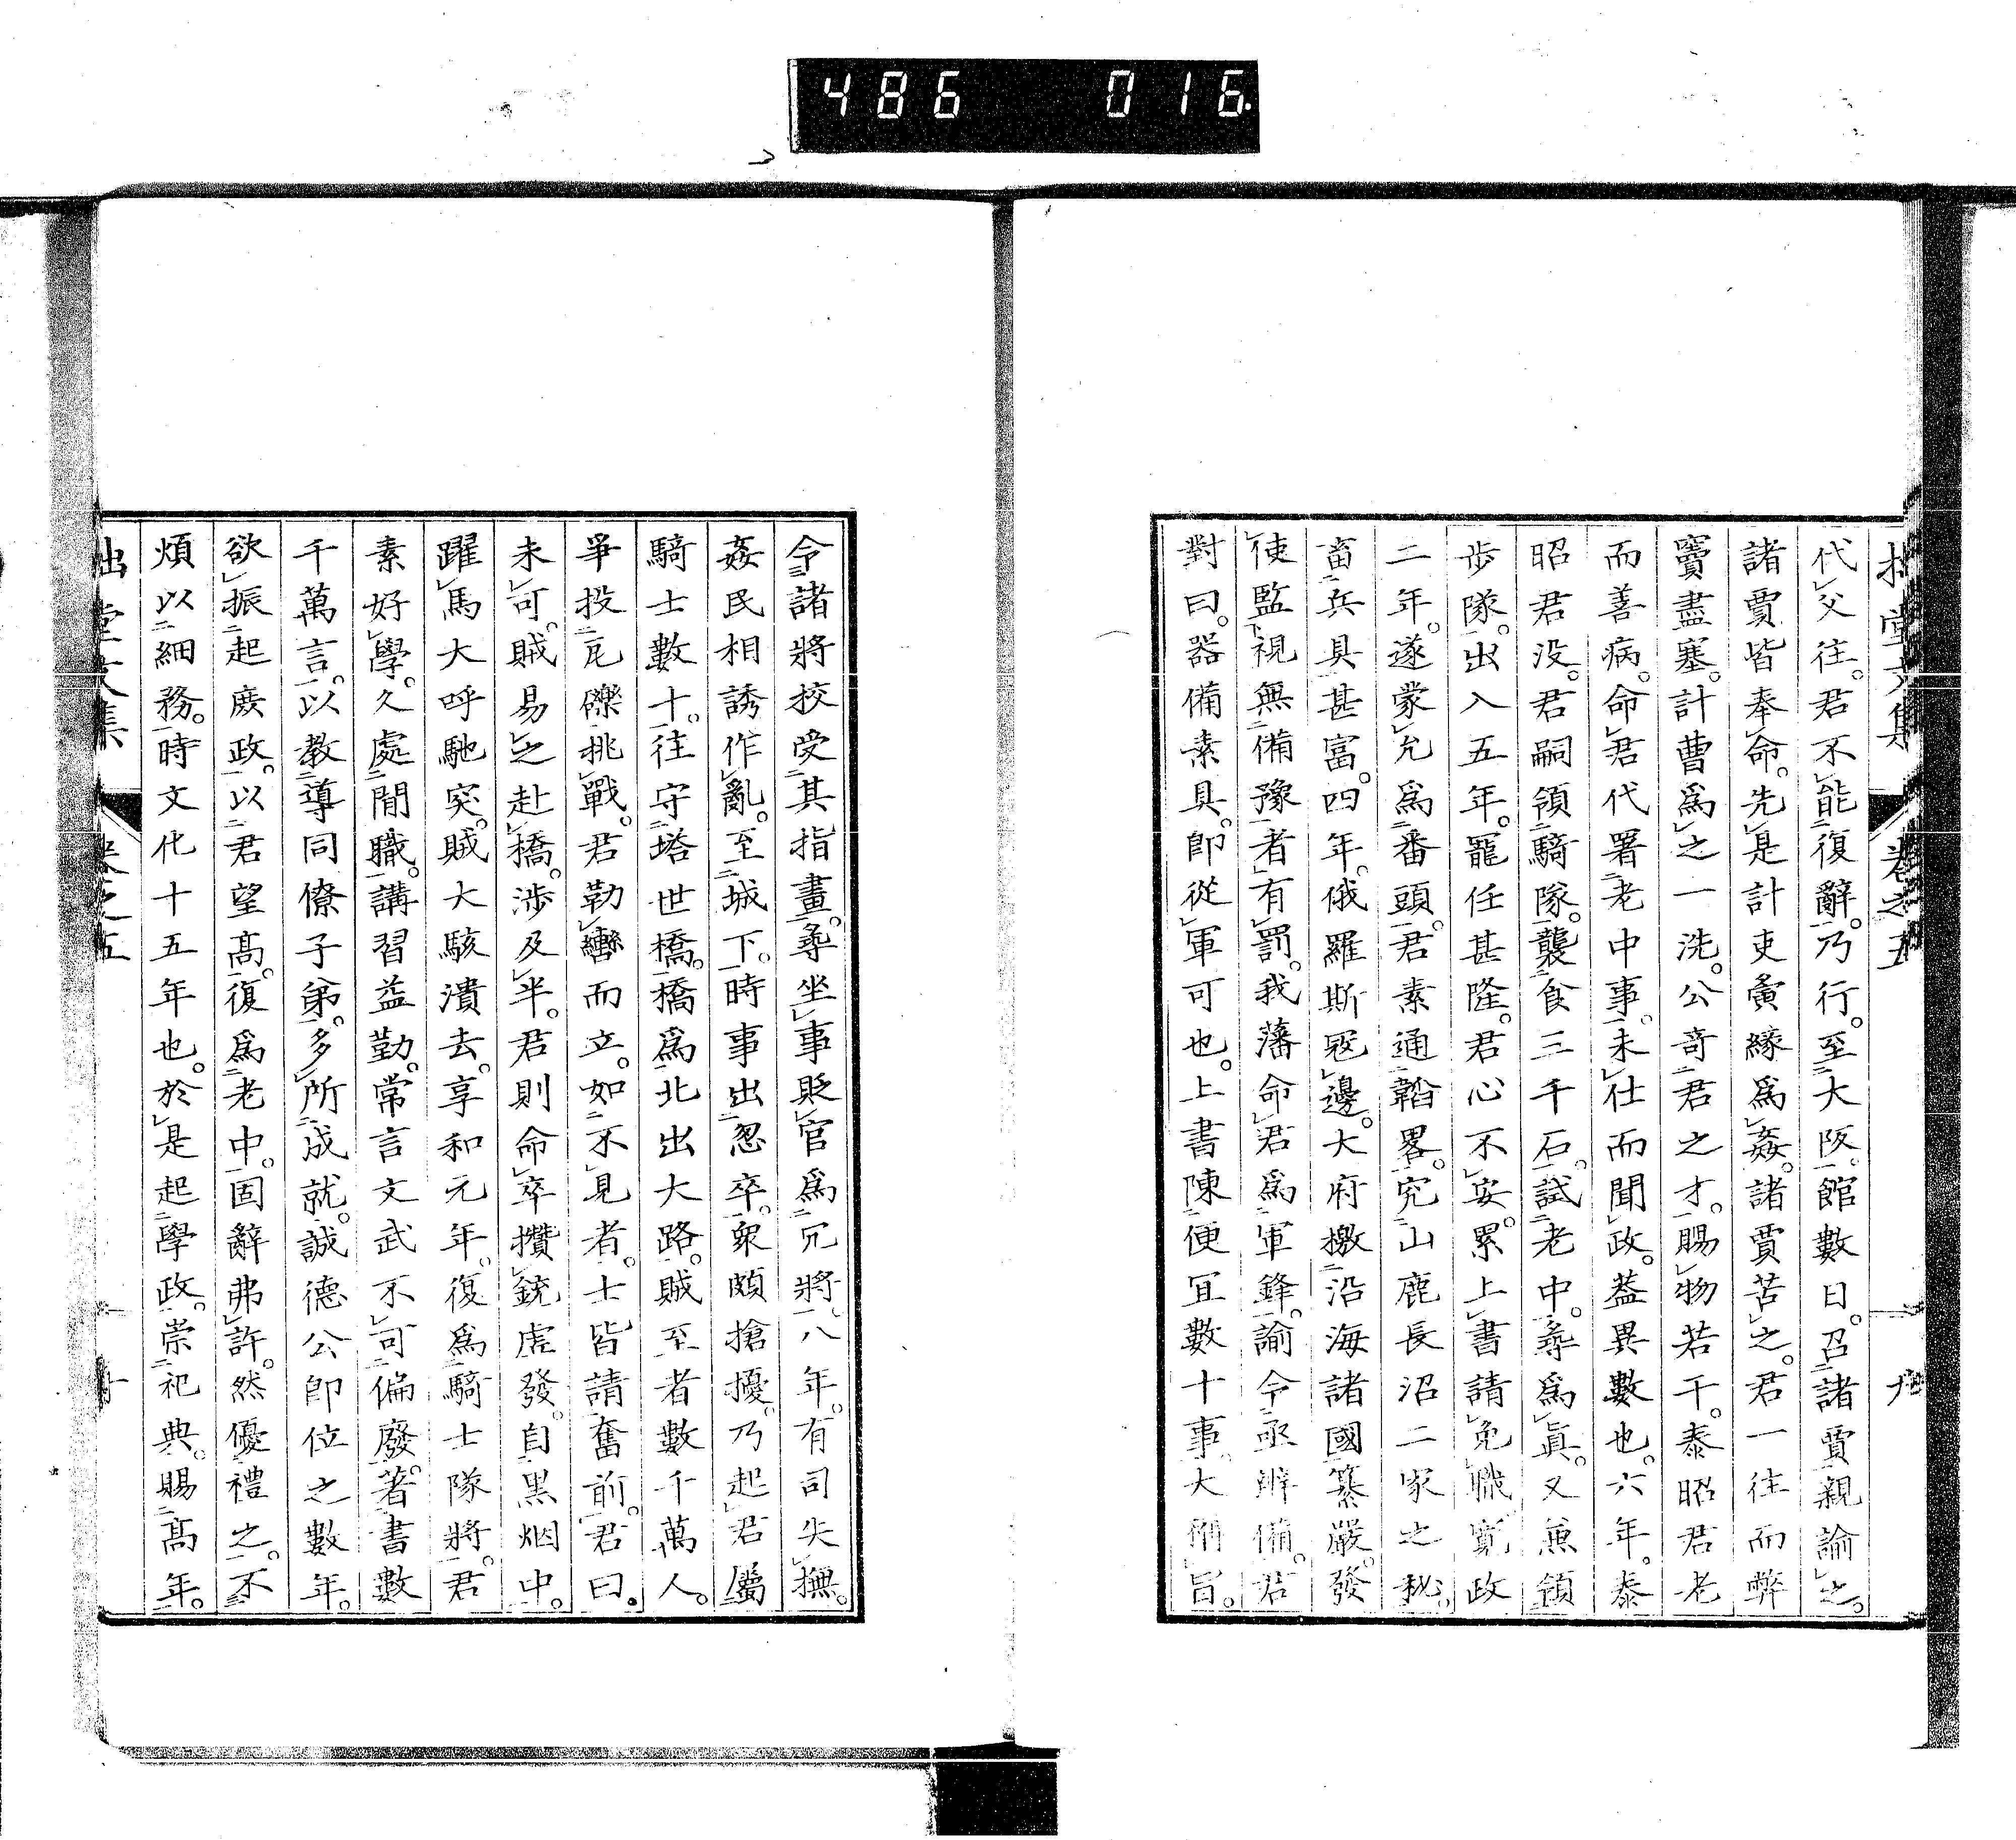 486 016
代父往。君不能復辭。乃行。至大阪。館數日。召諸賈親諭之。
諸賈皆奉命。先是計吏夤緣爲姦。諸賈苦之。君一往而弊
竇盡塞。計曹爲之一洗。公奇君之才。賜物若干。泰昭君老
而善病。命君代署老中事。未仕而聞政。蓋異數也。六年。泰
昭君没。君嗣領騎隊。襲食三千石。試老中。尋爲眞。又兼領
歩隊。出入五年。寵任甚隆。君心不安。累上書請免職寛政
二年。遂蒙允爲番頭。君素通韜畧。究山鹿長沼二家之秘。
畜兵具甚富。四年。俄羅斯寇邊。大府檄沿海諸國纂嚴。發
使監視無備豫者有罰。我藩命君爲軍鋒。諭令亟辨備。君
對曰。器備素具。即從軍可也。上書陳便宜數十事。大稱旨。
令諸將校受其指畫。尋坐事貶官爲冗將。八年。有司失撫。
姦民相誘作亂。至城下。時事出忽卒。衆頗搶擾。乃起君屬
騎士數十。往守塔世橋。橋爲北出大路。賊至者數千萬人。
爭投瓦礫挑戰。君勒轡而立。如不見者。士皆請奮前。君曰。
未可。賊易之赴橋。渉及半。君則命卒攢銃虚發。自黒烟中。
躍馬大呼馳突。賊大駭潰去。享和元年。復爲騎士隊將。君
素好學。久處閒職。講習益勤。常言文武不可偏廢。著書數
千萬言。以教導同僚子弟。多所成就。誠德公即位之數年。
欲振起廢政。以君望高。復爲老中。固辭弗許。然優禮之。不
煩以細務。時文化十五年也。於是起學政。崇祀典。賜高年。